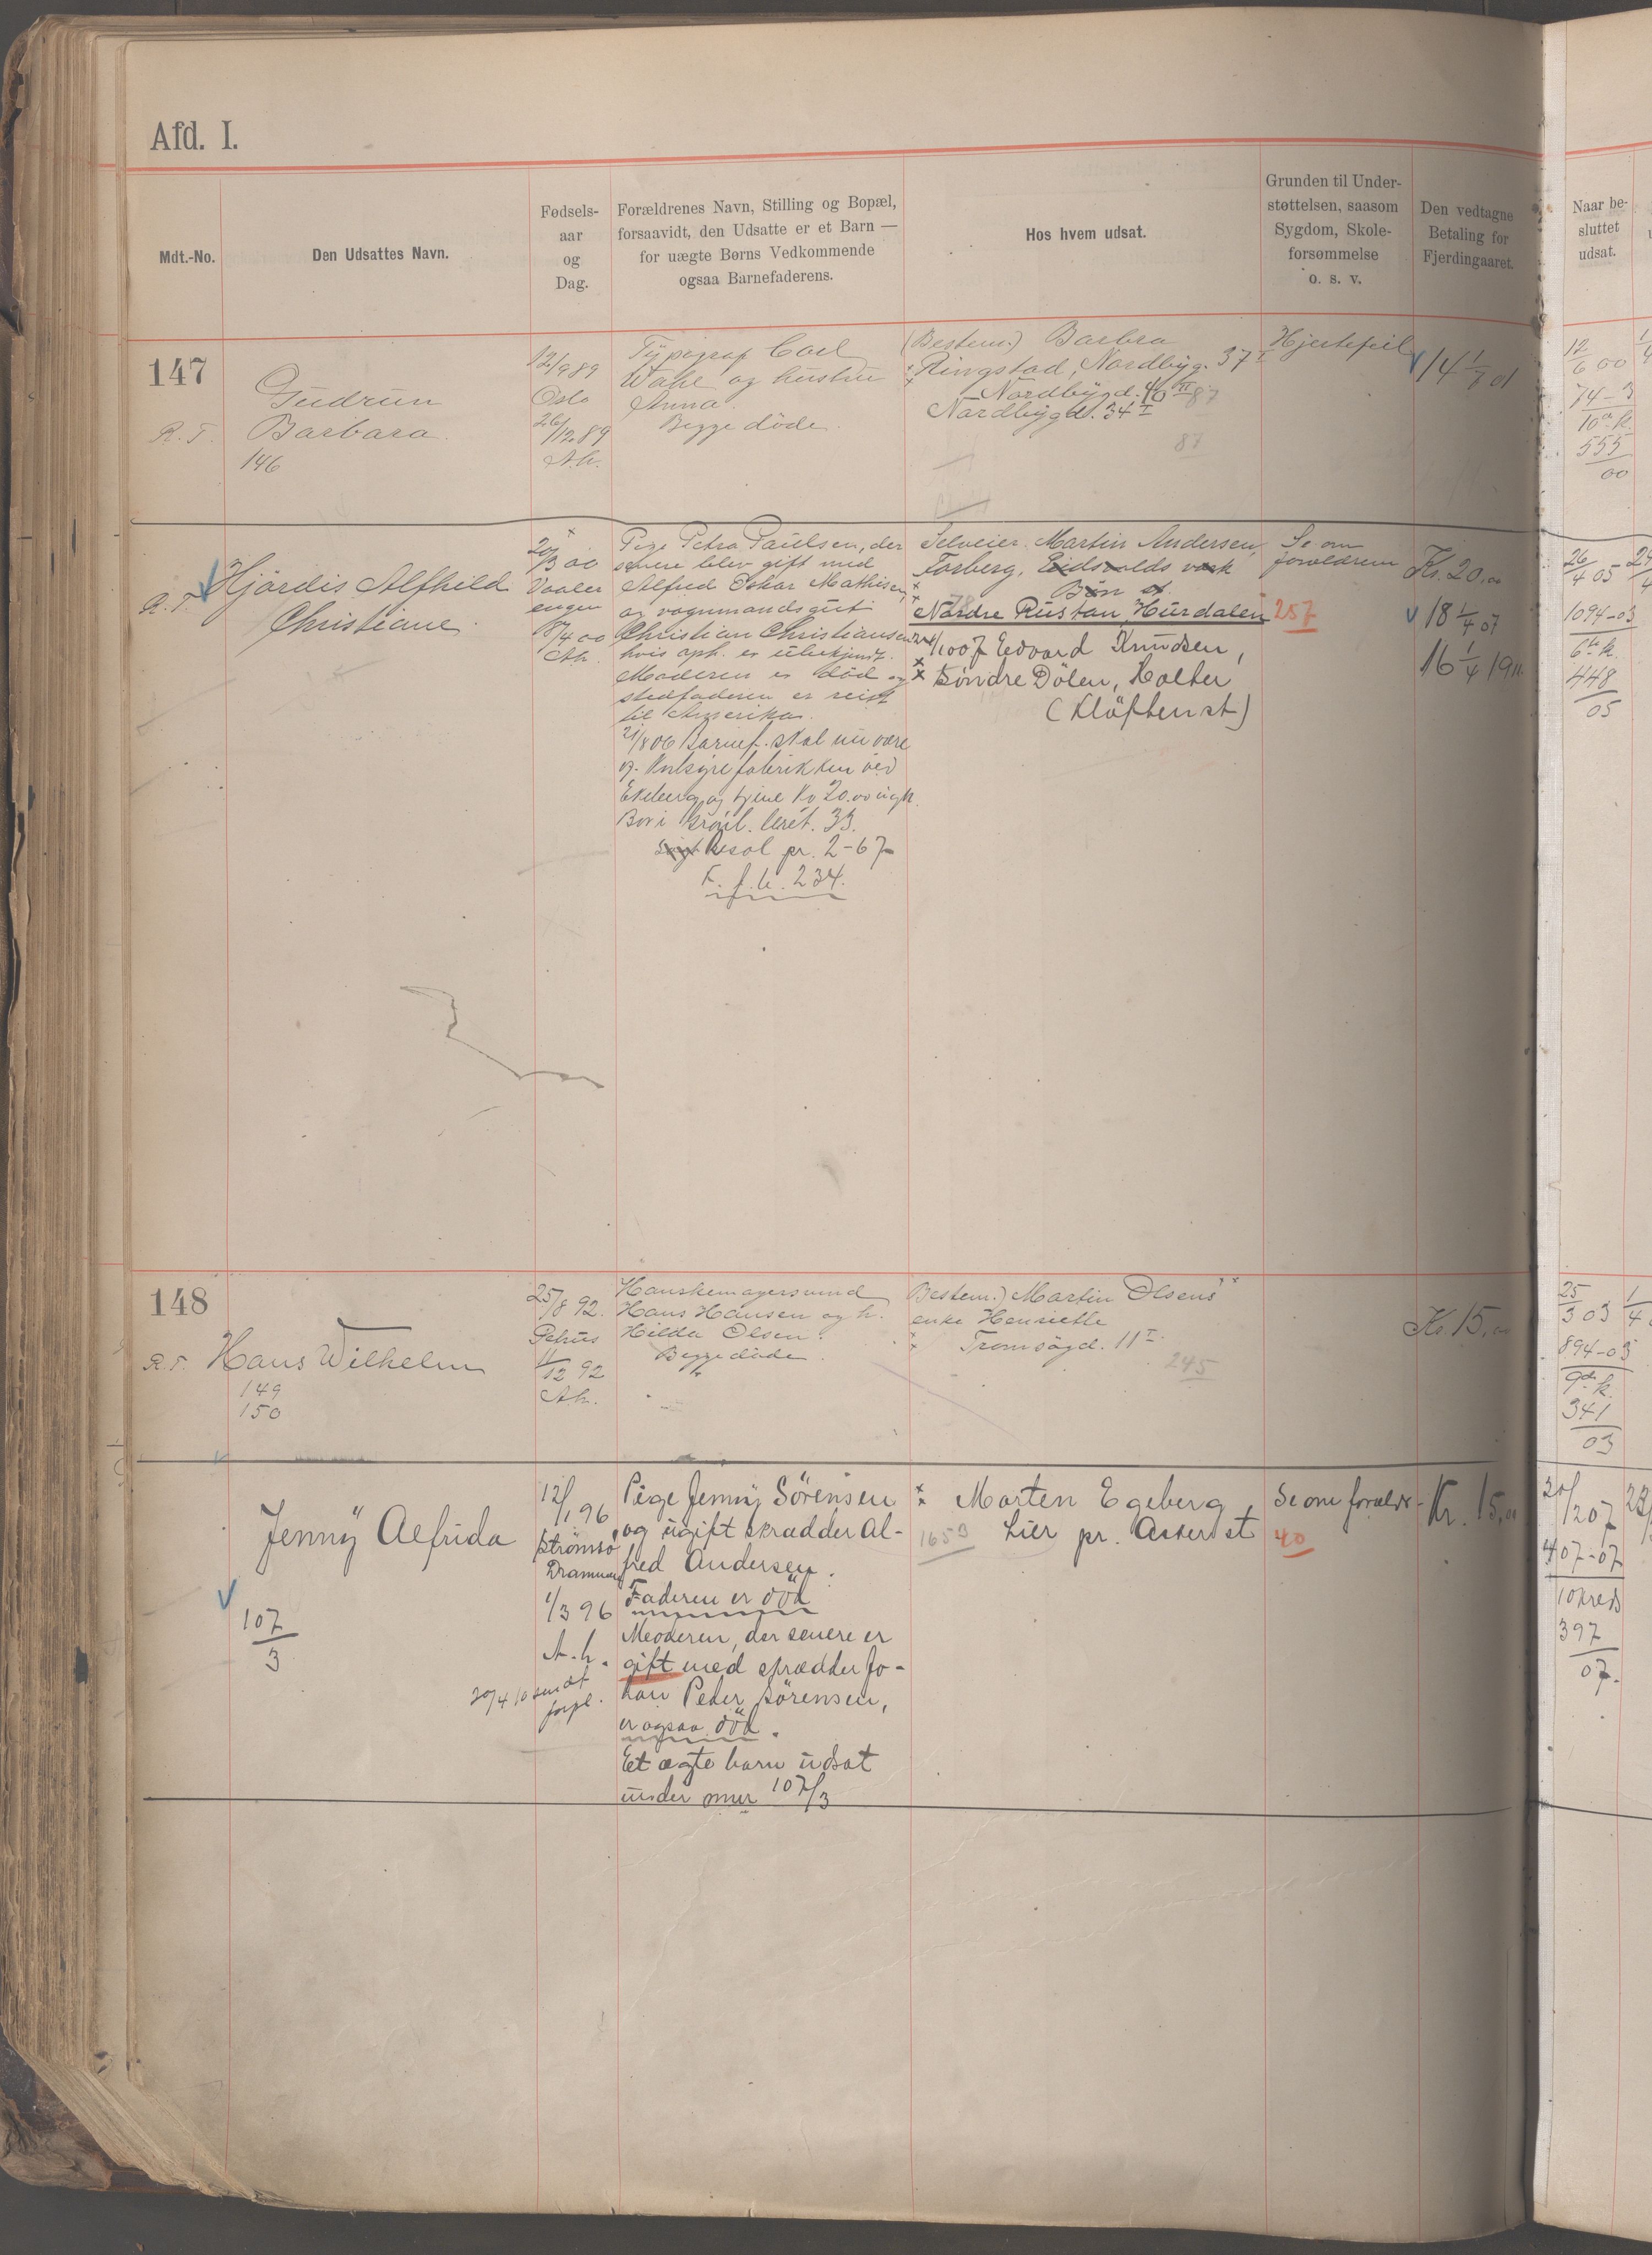 Afd. I.
Mdt.-No.
Den Udsattes Navn.
Fødsels-
aar
og
Dag.
Forældrenes Navn, Stilling og Bopæl,
forsaavidt, den Udsatte er et Barn —
for uægte Børns Vedkommende
ogsaa Barnefaderens.
Hos hvem udsat.
Grunden til Under-
støttelsen, saasom
Sygdom, Skole-
forsømmelse
o. s. v.
Den vedtagne
Betaling for
Fjerdingaaret.
Naar be-
sluttet
udsat.
147
Gudrun
R. T. Barbara
146
12/9 89
Oslo
26/12 89
A.k.
Typograf Carl
Wahl og hustru
Anna.
Begge döde.
(Bestem.) Barbra
Ringstad, Nordbyg. 37 I
Nordbygd. 40 II 87
Nordbygd. 34 I
87
Hjertefeil
14 1/7 01
12/6 00
74-3
10de k.
555
00
R. T. Hjördis Alfhild
Christiane
20/3 00
Vaaler
engen
15/4 00
A.h.
Pige Petra Paulsen, der
senere blev gift med
Alfred Oskar Mathisen,
og vognmandsgut
Christian Christiansen
hvis oph. er ubekjendt.
Moderen er död og
stedfaderen er reist
til Amerika.
21/8 06 Barnef. skal nu være
v. Kulsyrefabrikken ved
Ekeberg og tjene Kr 20.00 ugtl.
Bor i Kroil. leret. 33.
Resol pr. 2-67
F. f. b. 234.
Selveier Martin Andersen,
Forberg, Eidsvolds værk
Bön st.
Nordre Rustan, Hurdalen 257
24/10 07 Edvard Knudsen,
Söndre Dölen, Holter
(Klöften st)
Se om
forældrene
Kr. 20,00
18 1/4 07
16 1/4 1911
26/4 05
1094-03
6te k.
448
05
148
R. T. Hans Wilhelm
149
150
25/8 92.
Petrus
11/12 92
A.h.
Hanskemagersvend
Hans Hansen og h.
Hilda Olsen.
Begge döde.
Bestem.) Martin Olsens
enke Henriette
Tromsögd. 11 I
245
Kr. 15,00
25/3 03
894-03
9de k.
341
03
Jenny Alfrida
107/3
12/1 96
Strömsö
Drammen
1/3 96
A.h.
20/4 10 sendt
forpl.
Pige Jenny Sörensen
og ugift skrædder Al-
fred Andersen.
Faderen er död
Moderen, der senere er
gift med skrædder Jo-
han Peder Sörensen,
er ogsaa död.
Et ægte barn udsat
under mnr 107/3
Morten Egeberg,
Lier pr. Asker st
1653
Se om foræld.
40
Kr. 15,00
20/12 07
407-07
10 kreds
397
07.